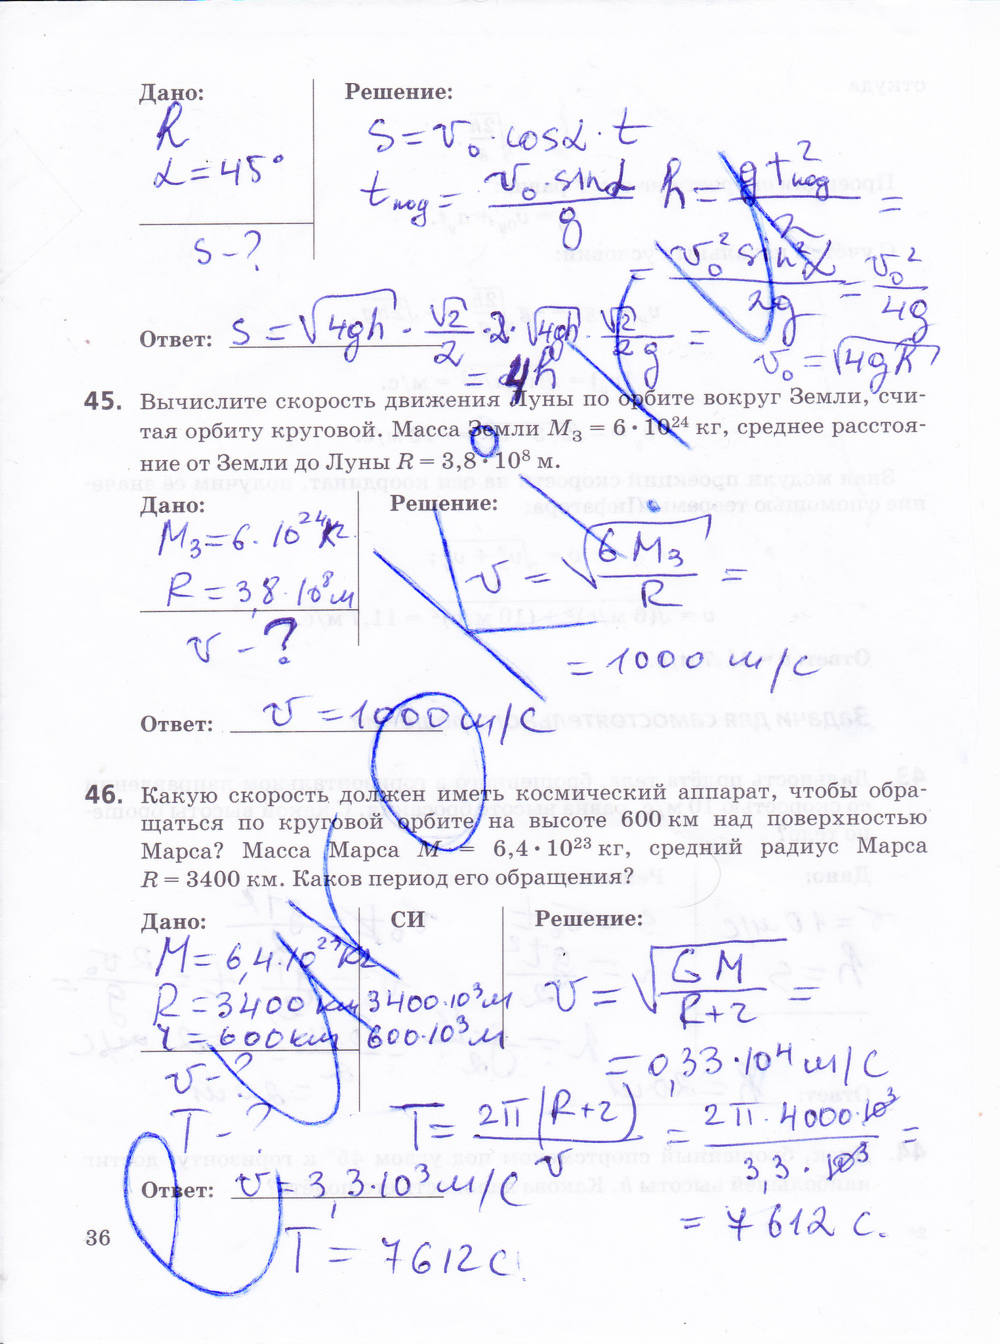 Дано:
Решение:
h
α = 45°
S - ?
S = v₀ · cosα · t
tпод = v₀ · sinα / g
h = gt²под / 2 =
= v₀² sin²α / 2g = v₀² / 4g
v₀ = √4gh
Ответ: S = √4gh · √2/2 · 2 · √4gh · √2 / 2g =
= 4h
45. Вычислите скорость движения Луны по орбите вокруг Земли, счи-
тая орбиту круговой. Масса Земли M₃ = 6 • 10²⁴ кг, среднее расстоя-
ние от Земли до Луны R = 3,8 • 10⁸ м.
Дано:
Решение:
M₃ = 6 · 10²⁴ кг
R = 3,8 · 10⁸ м
v - ?
v = √G M₃ / R =
= 1000 м/с
Ответ: v = 1000 м/с
46. Какую скорость должен иметь космический аппарат, чтобы обра-
щаться по круговой орбите на высоте 600 км над поверхностью
Марса? Масса Марса M = 6,4 • 10²³ кг, средний радиус Марса
R = 3400 км. Каков период его обращения?
Дано:
СИ
Решение:
R = 3400 км 3400·10³ м
r = 600 км 600·10³ м
v - ?
T - ?
v = √G M / R+r =
= 0,33 · 10⁴ м/с
T = 2π (R+r) / v = 2π · 4000 · 10³ / 3,3 · 10³ =
= 7612 с.
Ответ: v = 3,3 · 10³ м/с
T = 7612 с.
36